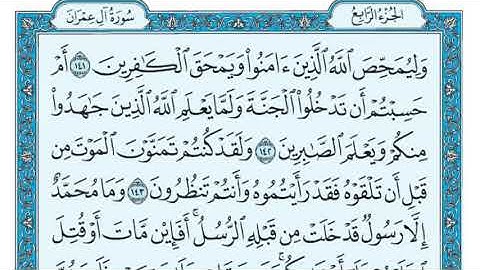 سُورَةُ آلِ عِمْرَانَ
الجُزْءُ الرَّابِعُ
وَلِيُمَحِّصَ ٱللَّهُ ٱلَّذِينَ ءَامَنُواْ وَيَمْحَقَ ٱلْكَٰفِرِينَ ١٤١ أَمْ
حَسِبْتُمْ أَن تَدْخُلُواْ ٱلْجَنَّةَ وَلَمَّا يَعْلَمِ ٱللَّهُ ٱلَّذِينَ جَٰهَدُواْ
مِنكُمْ وَيَعْلَمَ ٱلصَّٰبِرِينَ ١٤٢ وَلَقَدْ كُنتُمْ تَمَنَّوْنَ ٱلْمَوْتَ مِن
قَبْلِ أَن تَلْقَوْهُ فَقَدْ رَأَيْتُمُوهُ وَأَنتُمْ تَنظُرُونَ ١٤٣ وَمَا مُحَمَّدٌ
إِلَّا رَسُولٌ قَدْ خَلَتْ مِن قَبْلِهِ ٱلرُّسُلُ ۚ أَفَإِيْن مَّاتَ أَوْ قُتِلَ